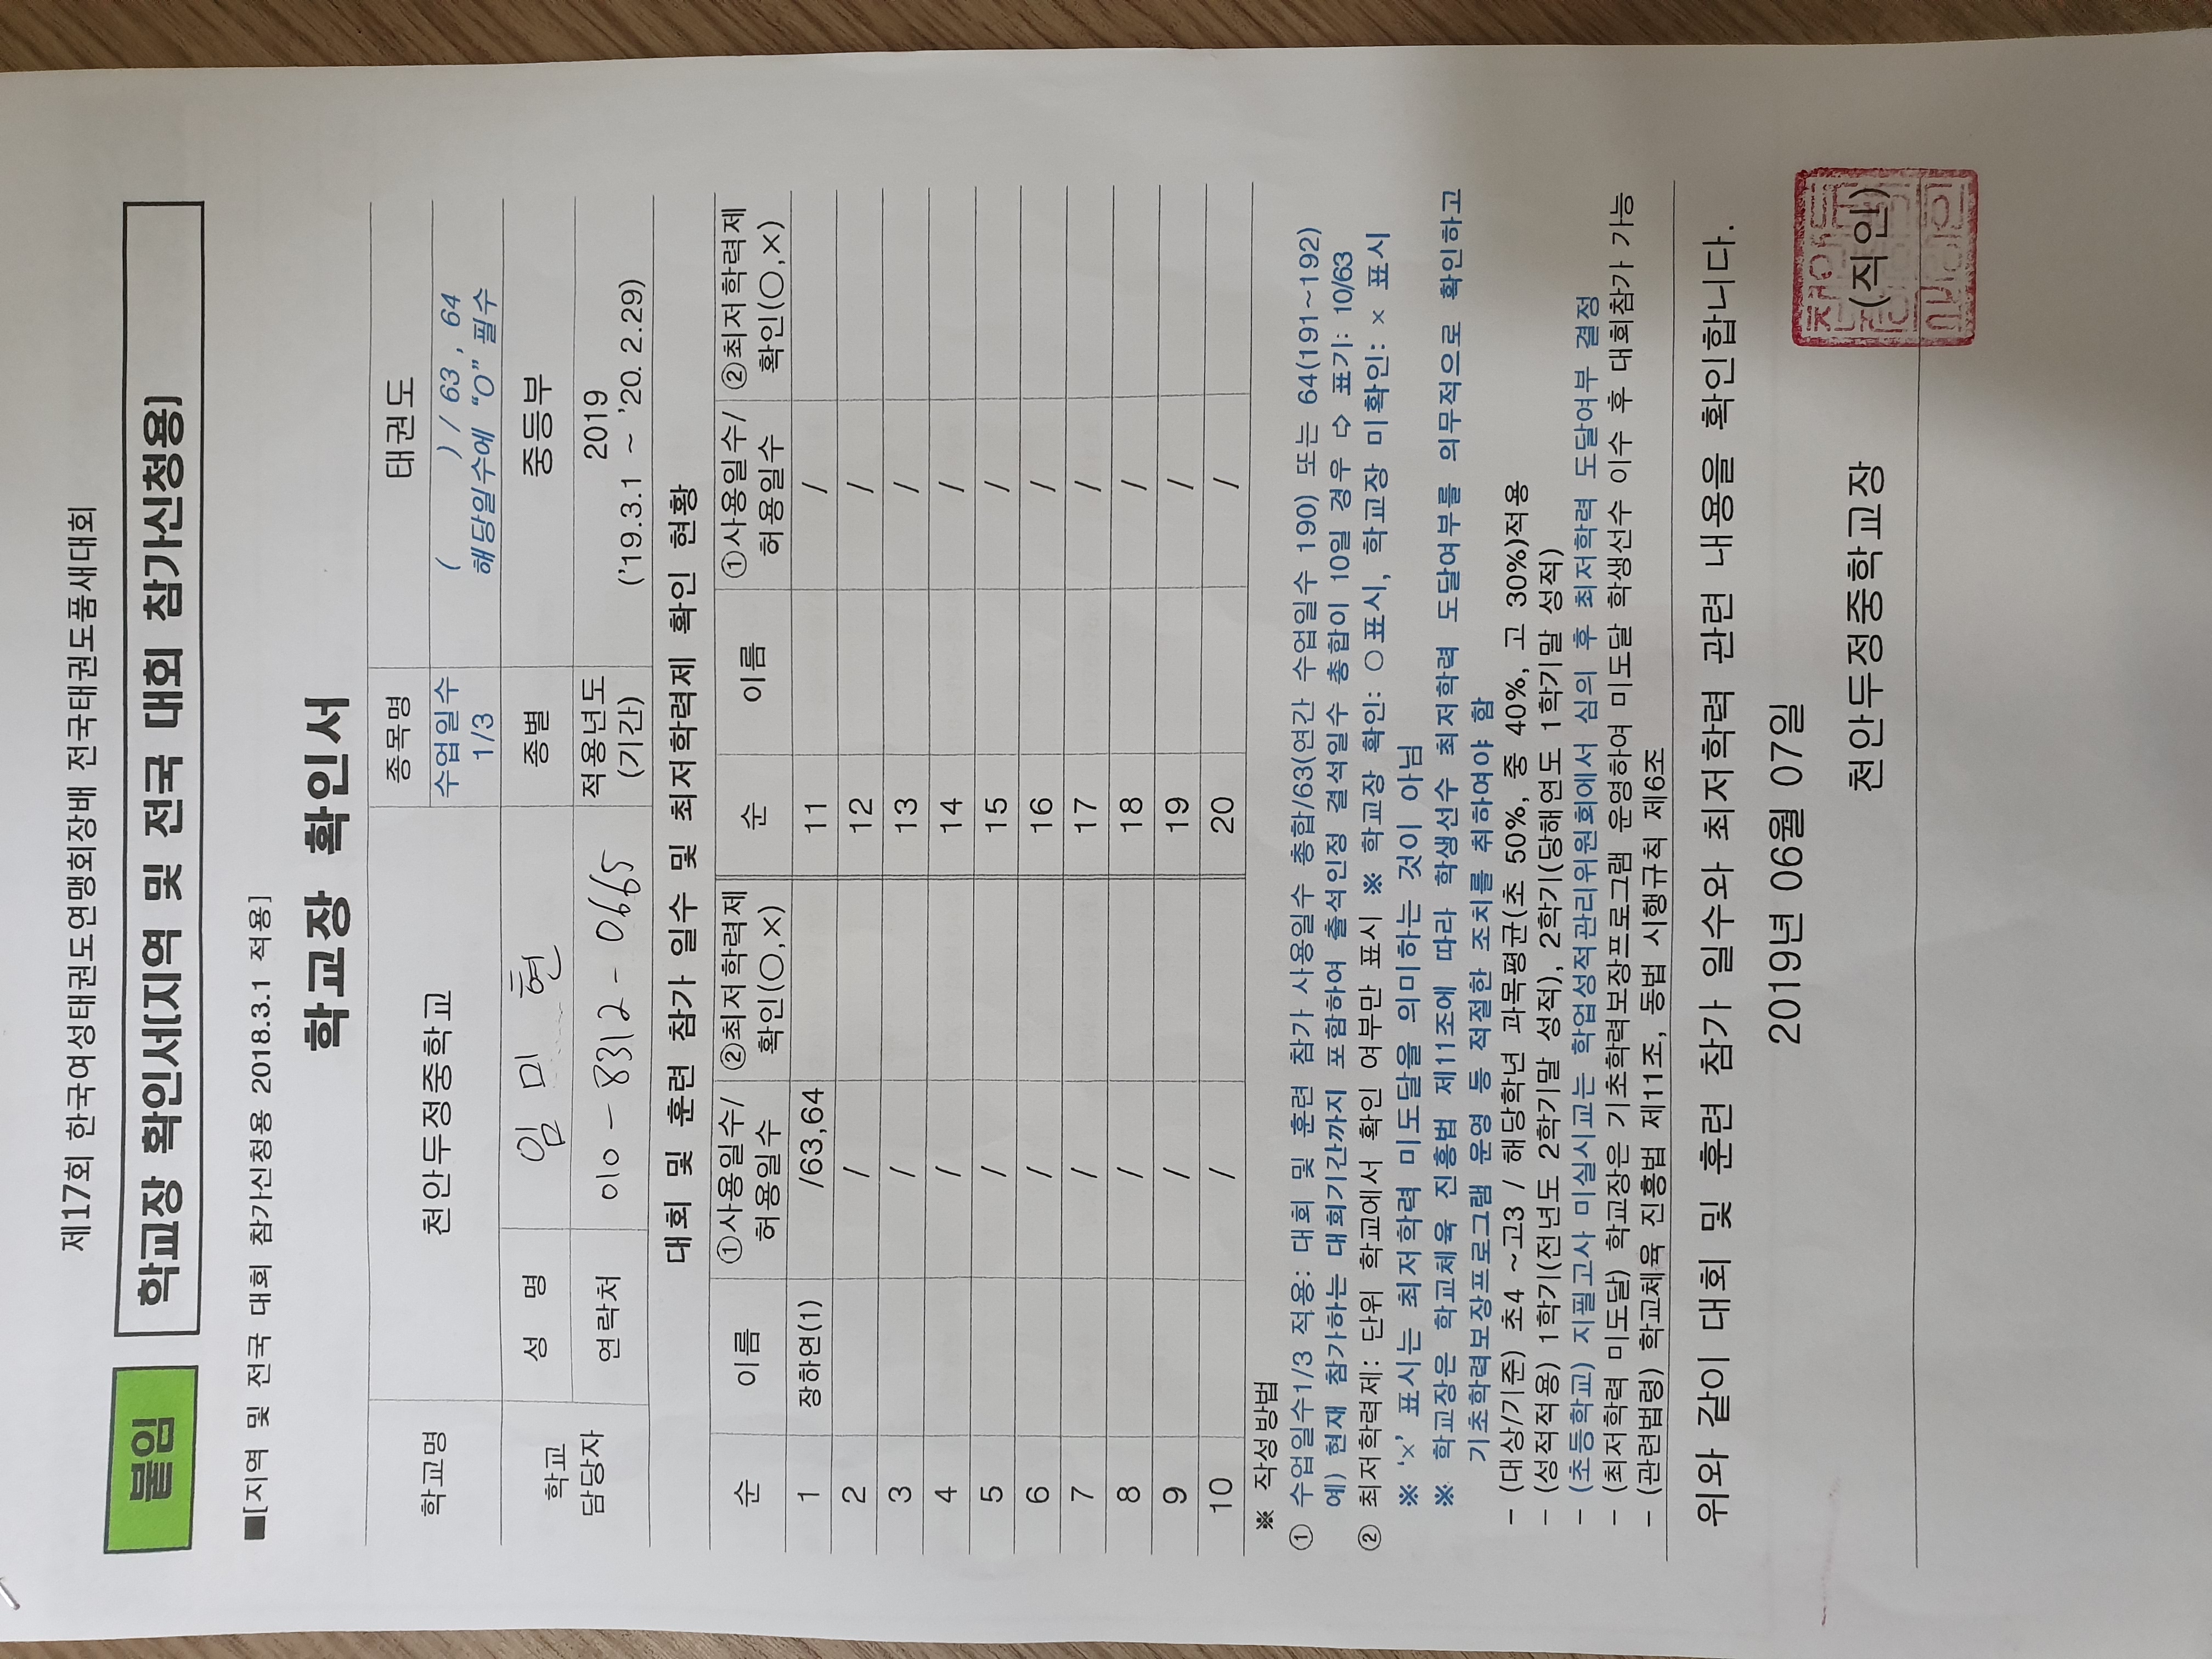 제17회 한국여성태권도연맹회장배 전국태권도품새대회
붙임 학교장 확인서[지역 및 전국 대회 참가신청용]
■[지역 및 전국 대회 참가신청용 2018.3.1 적용]
학교장 확인서
학교명 천안두정중학교 종목명 태권도
수업일수 1/3 ( ) / 63, 64
해당일수에 "O" 필수
학교 담당자 성 명 임미현 종별 중등부
연락처 010-8312-0665 적용년도 (기간) 2019
('19.3.1 ~ '20. 2.29)
대회 및 훈련 참가 일수 및 최저학력제 확인 현황
순 이름 ①사용일수/허용일수 ②최저학력제 확인(○,×) 순 이름 ①사용일수/허용일수 ②최저학력제 확인(○,×)
1 장하연(1) /63,64 11 /
2 / 12 /
3 / 13 /
4 / 14 /
5 / 15 /
6 / 16 /
7 / 17 /
8 / 18 /
9 / 19 /
10 / 20 /
※ 작성방법
① 수업일수1/3 적용: 대회 및 훈련 참가 사용일수 총합/63(연간 수업일수 190) 또는 64(191~192)
예) 현재 참가하는 대회기간까지 포함하여 출석인정 결석일수 총합이 10일 경우 ⇨ 표기: 10/63
② 최저학력제: 단위 학교에서 확인 여부만 표시 ※ 학교장 확인: ○표시, 학교장 미확인: × 표시
※ '×' 표시는 최저학력 미도달을 의미하는 것이 아님
※ 학교장은 학교체육 진흥법 제11조에 따라 학생선수 최저학력 도달여부를 의무적으로 확인하고
기초학력보장프로그램 운영 등 적절한 조치를 취하여야 함
- (대상/기준) 초4 ~고3 / 해당학년 과목평균(초 50%, 중 40%, 고 30%)적용
- (성적적용) 1학기(전년도 2학기말 성적), 2학기(당해연도 1학기말 성적)
- (초등학교) 지필고사 미실시교는 학업성적관리위원회에서 심의 후 최저학력 도달여부 결정
- (최저학력 미도달) 학교장은 기초학력보장프로그램 운영하여 미도달 학생선수 이수 후 대회참가 가능
- (관련법령) 학교체육 진흥법 제11조, 동법 시행규칙 제6조
위와 같이 대회 및 훈련 참가 일수와 최저학력 관련 내용을 확인합니다.
2019년 06월 07일
천안두정중학교장 (직인)